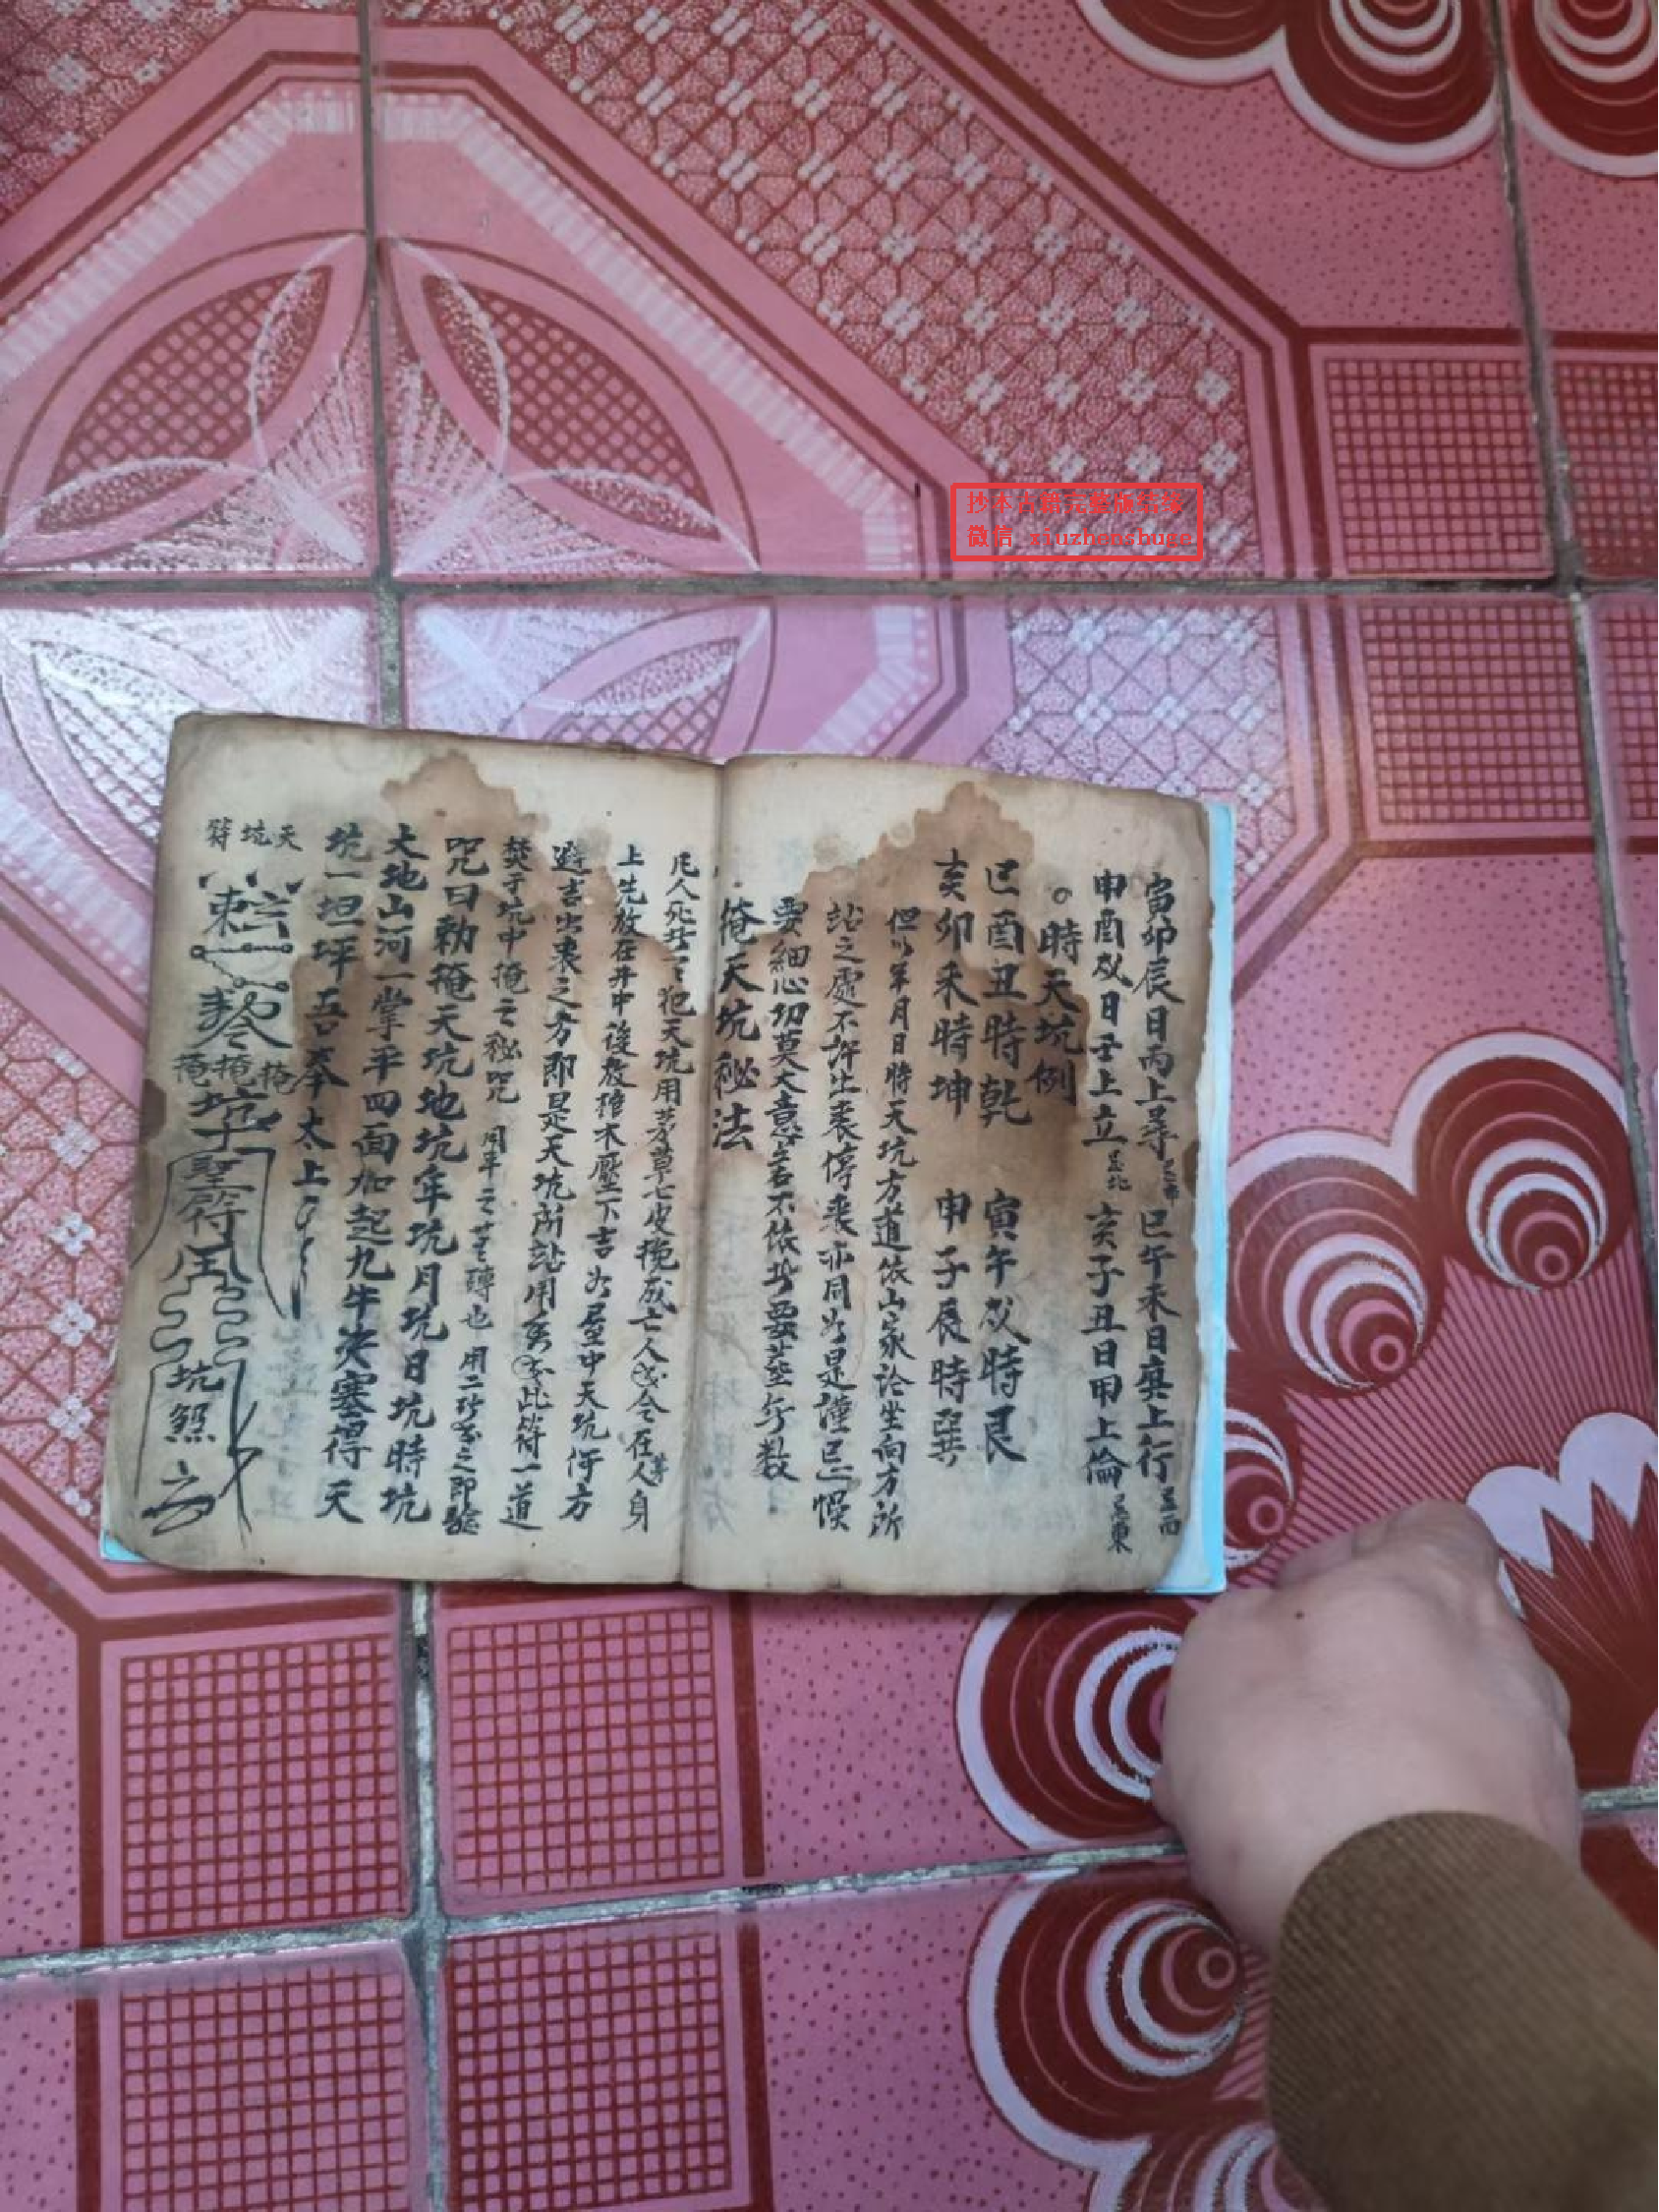 抄本古籍完整版结缘
微信 xiuzhenshuge
寅卯辰日丙上尋 巳午未日庚上行
申酉戌日壬上立 亥子丑日甲上倫
。時天坑例
巳酉丑時乾 寅午戌時艮
亥卯未時坤 申子辰時巽
但以年月日時天坑方道依山家论坐向方所
站之處不許出丧停丧亦同如是謹已悮
要細心切莫大意
俺天坑秘法
凡人死 犯天坑用茅草七皮 成亡人 令在人身
上先放在井中後放 木壓下吉 如屋中天坑 方
避吉出丧之方即是天坑所站用 此符一道
焚于坑中掩之秘咒 用 也 用二 之即驗
咒曰勅掩天坑地坑年坑月坑日坑時坑
大地山河一掌平四面加起九牛 塞得天
坑一坦坪吾奉太上
天坑符
掩掩掩
坑
聖符
坑煞